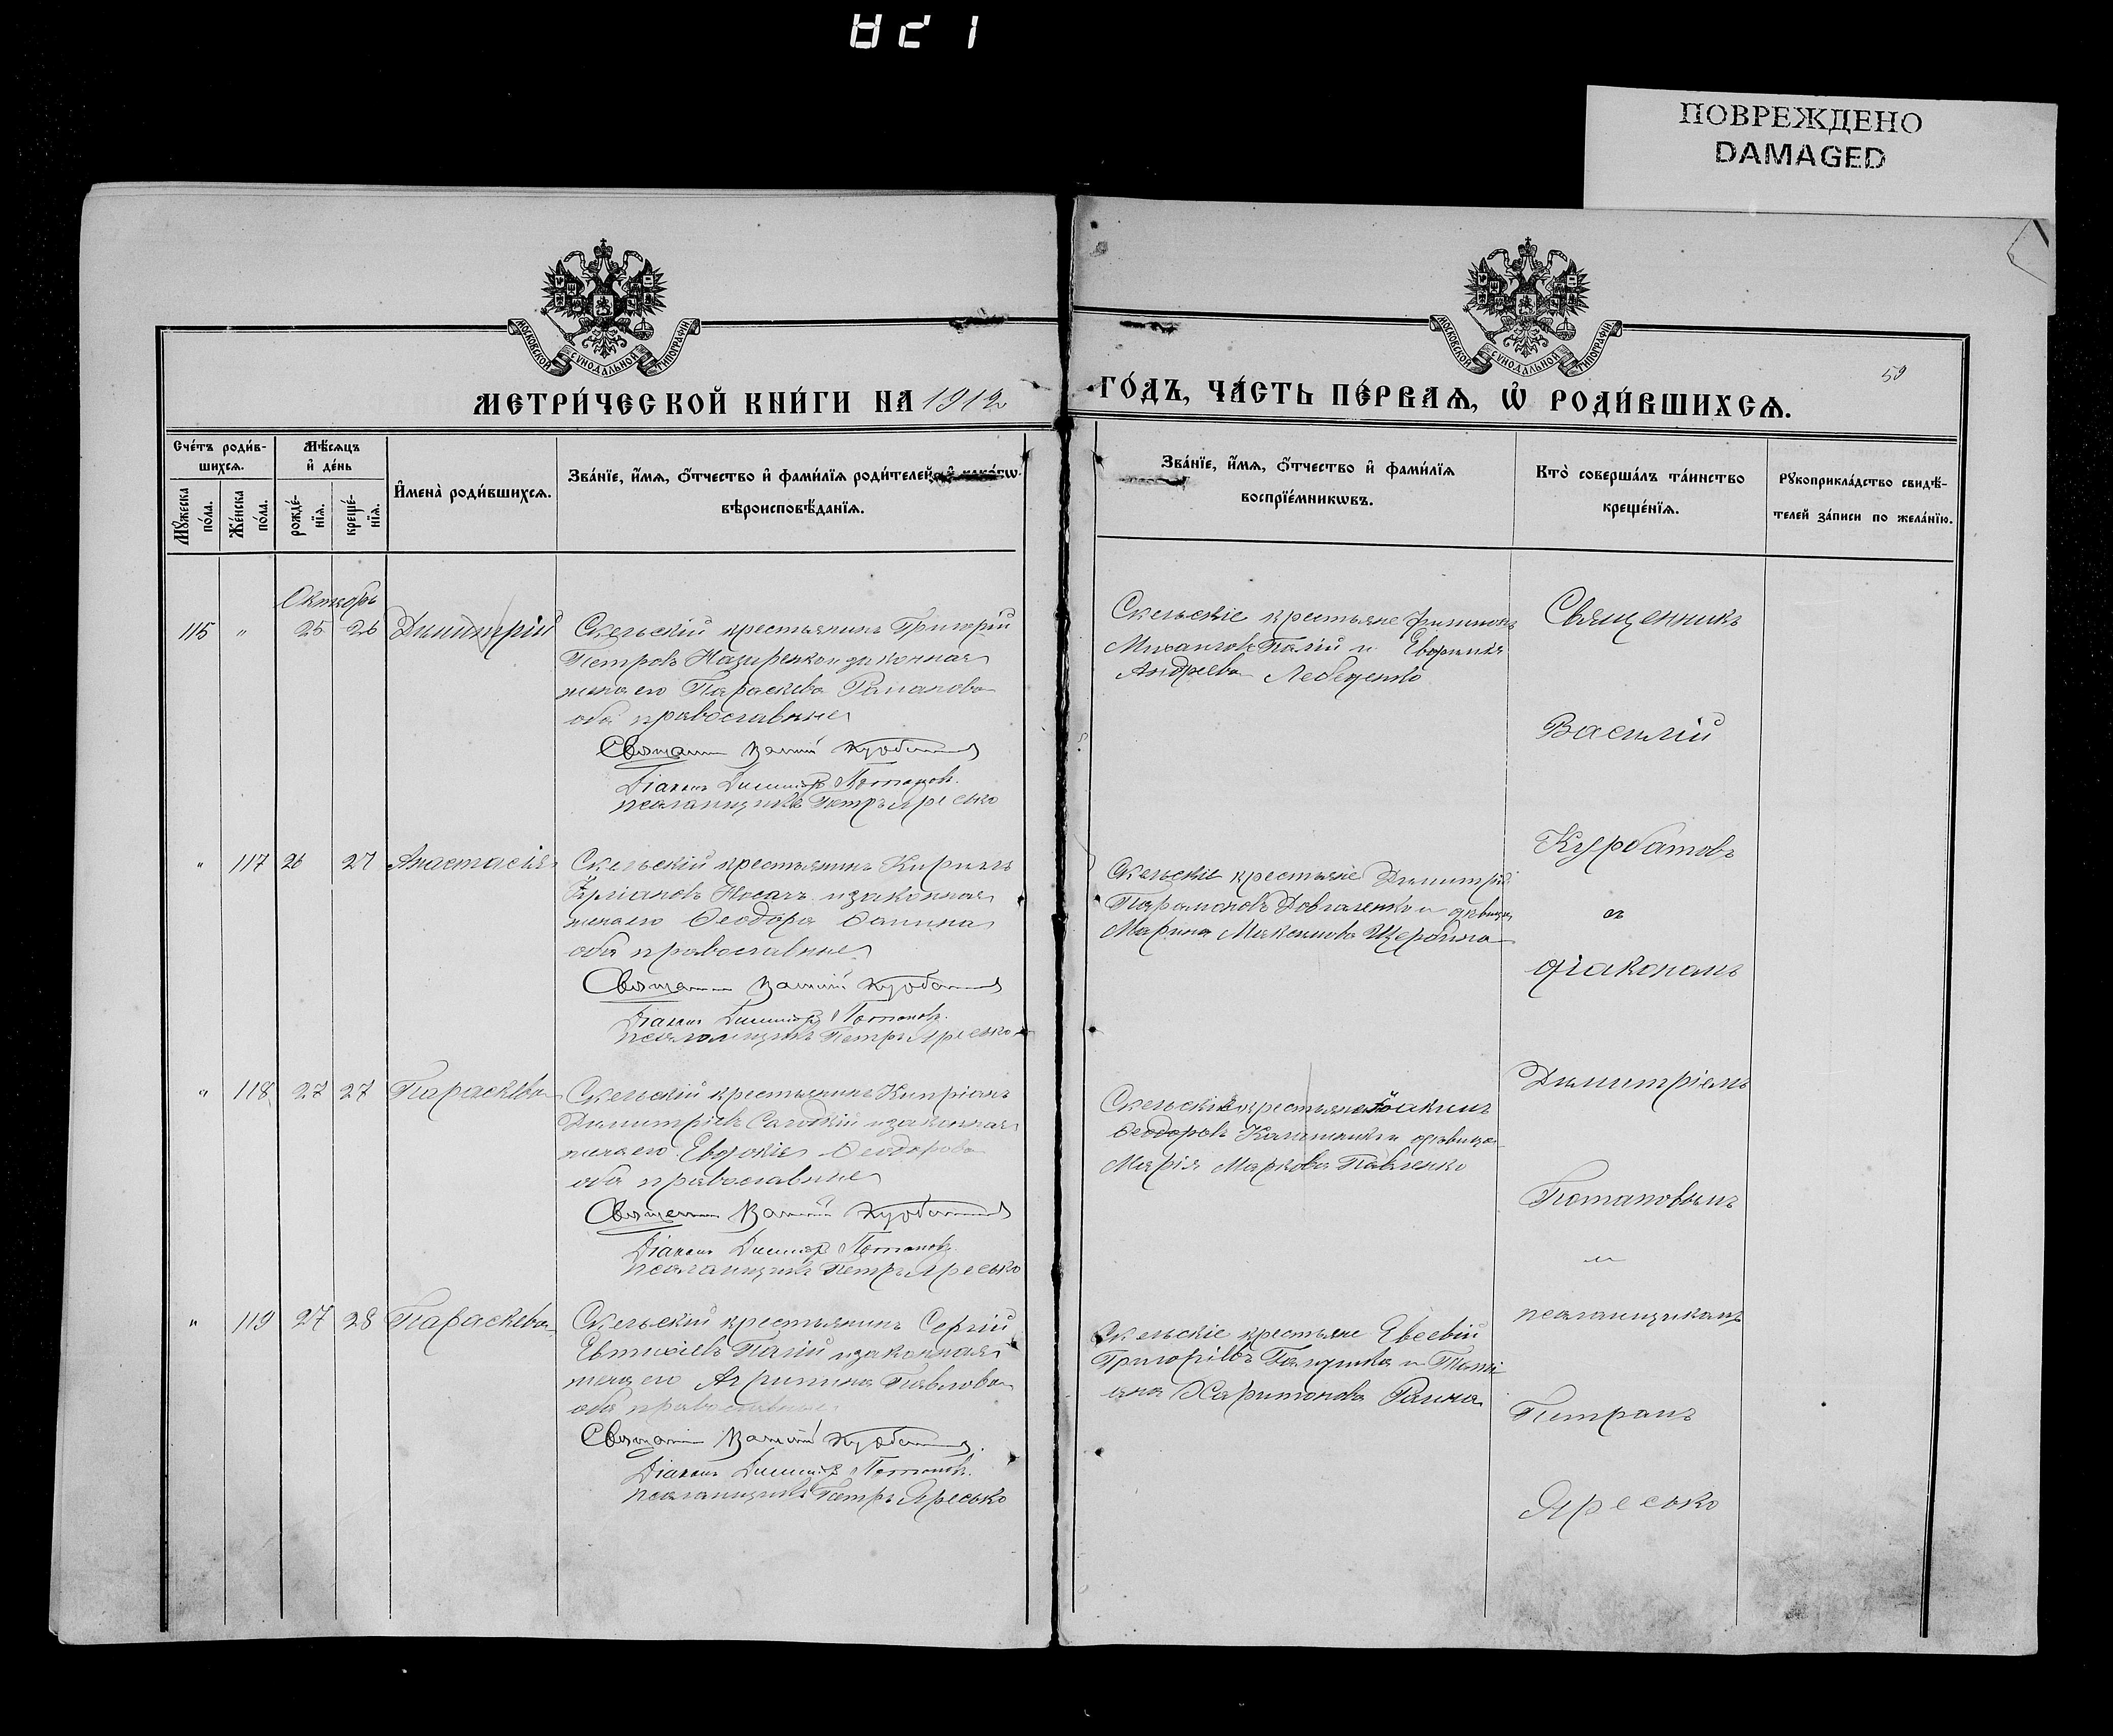 ПОВРЕЖДЕНО
DAMAGED
МОСКОВСКОЙ СУНОДАЛЬНОЙ ТИПОГРАФІИ
МОСКОВСКОЙ СУНОДАЛЬНОЙ ТИПОГРАФІИ
59
МЕТРИ́ЧЕСКОЙ КНИ́ГИ НА 1912
ГО́ДЪ, ЧА́СТЬ ПЕ́РВАѦ, Ѡ҆ РОДИ́ВШИХСѦ.
Сче́тъ роди́в-
шихсѧ.
Мѣ́сѧцъ
и҆ де́нь
Мꙋ́жеска
по́ла.
Же́нска
по́ла.
рожде́-
нїѧ.
креще́-
нїѧ.
И҆мена̀ роди́вшихсѧ.
Зва́нїе, и҆́мѧ, ѻ҆́тчество и҆ фами́лїѧ роди́телей,
вѣроисповѣ́данїѧ.
Зва́нїе, и҆́мѧ, ѻ҆́тчество и҆ фами́лїѧ
воспрїе́мникѡвъ.
Кто̀ соверша́лъ та́инство
креще́нїѧ.
Рꙋкоприкла́дство свидѣ́-
телей за́писи по жела́нїю.
Октябрь
115 " 25 26 Димитрій
Скельскій крестьянинъ Григорій
Петровъ Назаренко и законная
жена его Параскева Романова
оба православные
Священникъ Василій Курбатовъ
Діаконъ Димитрій Потаповъ.
псаломщикъ Петръ Яресько
Скельскіе крестьяне Филимонъ
Михайловъ Палій и Евфимія
Андреева
Священникъ
Василій
Курбатовъ
и
діакономъ
Димитріемъ
Потаповымъ
и
псаломщикомъ
Петромъ
Яресько
" 117 26 27 Анастасія
Скельскій крестьянинъ Кириллъ
Носачъ и законная
жена его Феодора
оба православные
Священникъ Василій Курбатовъ
Діаконъ Димитрій Потаповъ.
псаломщикъ Петръ Яресько
Скельскіе крестьяне Димитрій
Парамоновъ Довгаленко и дѣвица
Марина Максимова Щербина
" 118 27 27 Параскева
Скельскій крестьянинъ Кипріанъ
Димитріевъ и законная
жена его Евдокія Феодорова
оба православные
Священникъ Василій Курбатовъ
Діаконъ Димитрій Потаповъ.
псаломщикъ Петръ Яресько
Скельскіе крестьяне Іоакимъ
Феодоровъ и дѣвица
Марія Маркова Павленко
" 119 27 28 Параскева
Скельскій крестьянинъ Сергій
Евтихіевъ Палій и законная
жена его Агрипина Павлова
оба православные
Священникъ Василій Курбатовъ.
Діаконъ Димитрій Потаповъ.
псаломщикъ Петръ Яресько
Скельскіе крестьяне Евсевій
Григоріевъ и Тати-
ана Харитонова